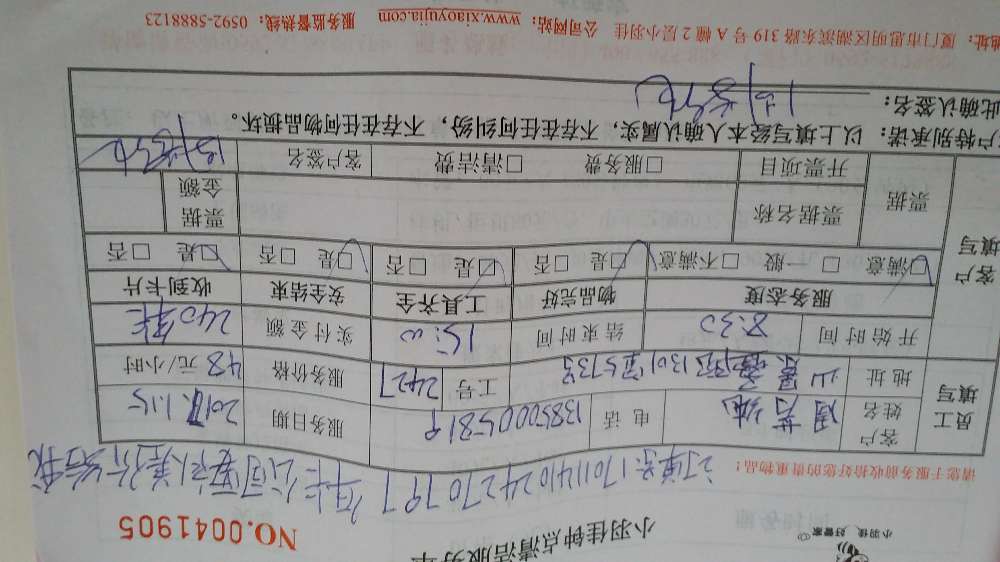 小羽佳 好管家
小羽佳钟点清洁服务单
NO.0041905
请您于服务前收拾好您的贵重物品!
员工填写
客户姓名
电话 13850005819
服务日期 2017.1.15
地址
服务价格 48元/小时
工号 2427
开始时间 8:30
结束时间 15:00
实付金额 240
客户填写
服务态度 物品完好 工具齐全 安全结束 收到卡片
□满意 □一般 □不满意 □是 □否 □是 □否 □是 □否 □是 □否
票据 票据名称 票据金额
开票项目 □服务费 □清洁费 客户签名
户特别承诺:以上填写经本人确认属实,不存在任何纠纷,不存在任何物品损坏。
此确认签名:
地址:厦门市思明区湖滨东路 319 号 A 幢 2 层小羽佳 公司网站:www.xiaoyujia.com 服务监督热线:0592-5888123